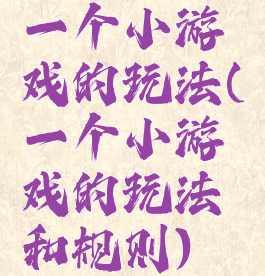 一个小游
戏的玩法(
一个小游
戏的玩法
和规则)